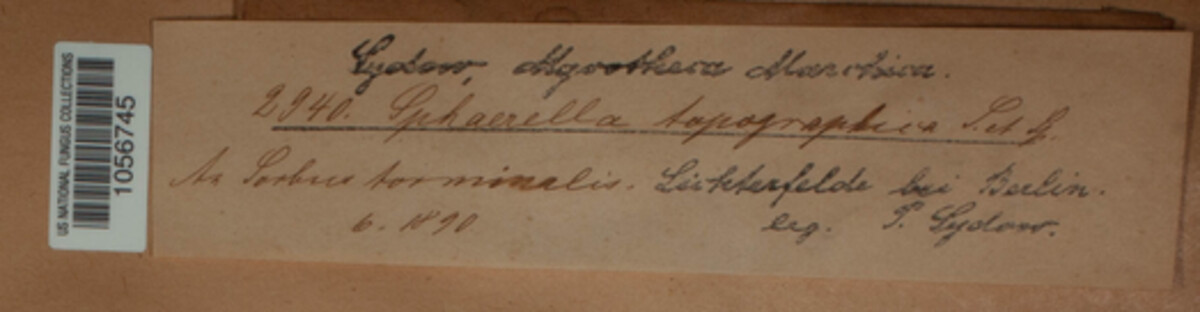 US NATIONAL FUNGUS COLLECTIONS
1056745
Sydow, Mycotheca Marchica.
2940. Sphaerella topographica S. et Sp.
An Sorbus torminalis. Lichterfelde bei Berlin.
6. 1890 leg. P. Sydow.